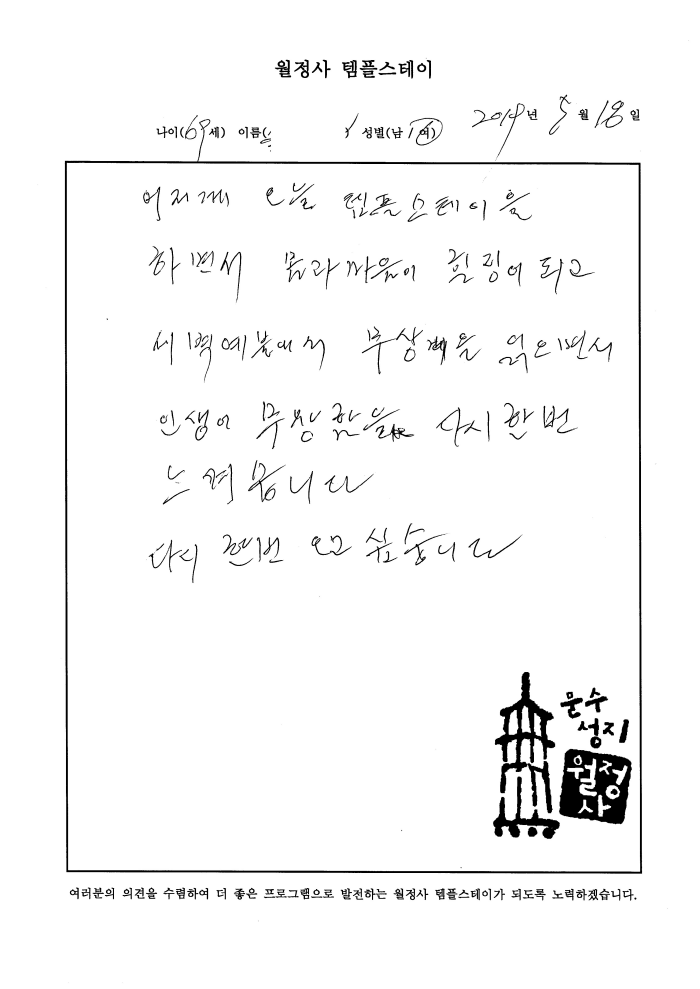 월정사 템플스테이
나이(69세) 이름( ) 성별(남/여) 2019년 5월 18일
어저께 오늘 템플스테이를
하면서 몸과 마음이 힐링이 되고
새벽예불에서 무상계를 읽으면서
인생이 무상함을 다시 한번
느껴봅니다
다시 한번 오고 싶습니다
문수
성지
월정
사
여러분의 의견을 수렴하여 더 좋은 프로그램으로 발전하는 월정사 템플스테이가 되도록 노력하겠습니다.